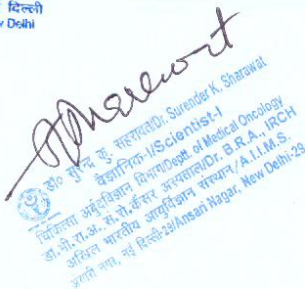 दिल्ली
Delhi
डा० सुरेन्द्र कु. सहरावत/Dr. Surender K. Sharawat
वैज्ञानिक-I/Scientist-I
चिकित्सा अर्बुदविज्ञान विभाग/Deptt. of Medical Oncology
डा.भी.रा.अ., स.रो.कैंसर अस्पताल/Dr. B.R.A., IRCH
अखिल भारतीय आयुर्विज्ञान संस्थान/A.I.I.M.S.
अंसारी नगर, नई दिल्ली-29/Ansari Nagar, New Delhi-29